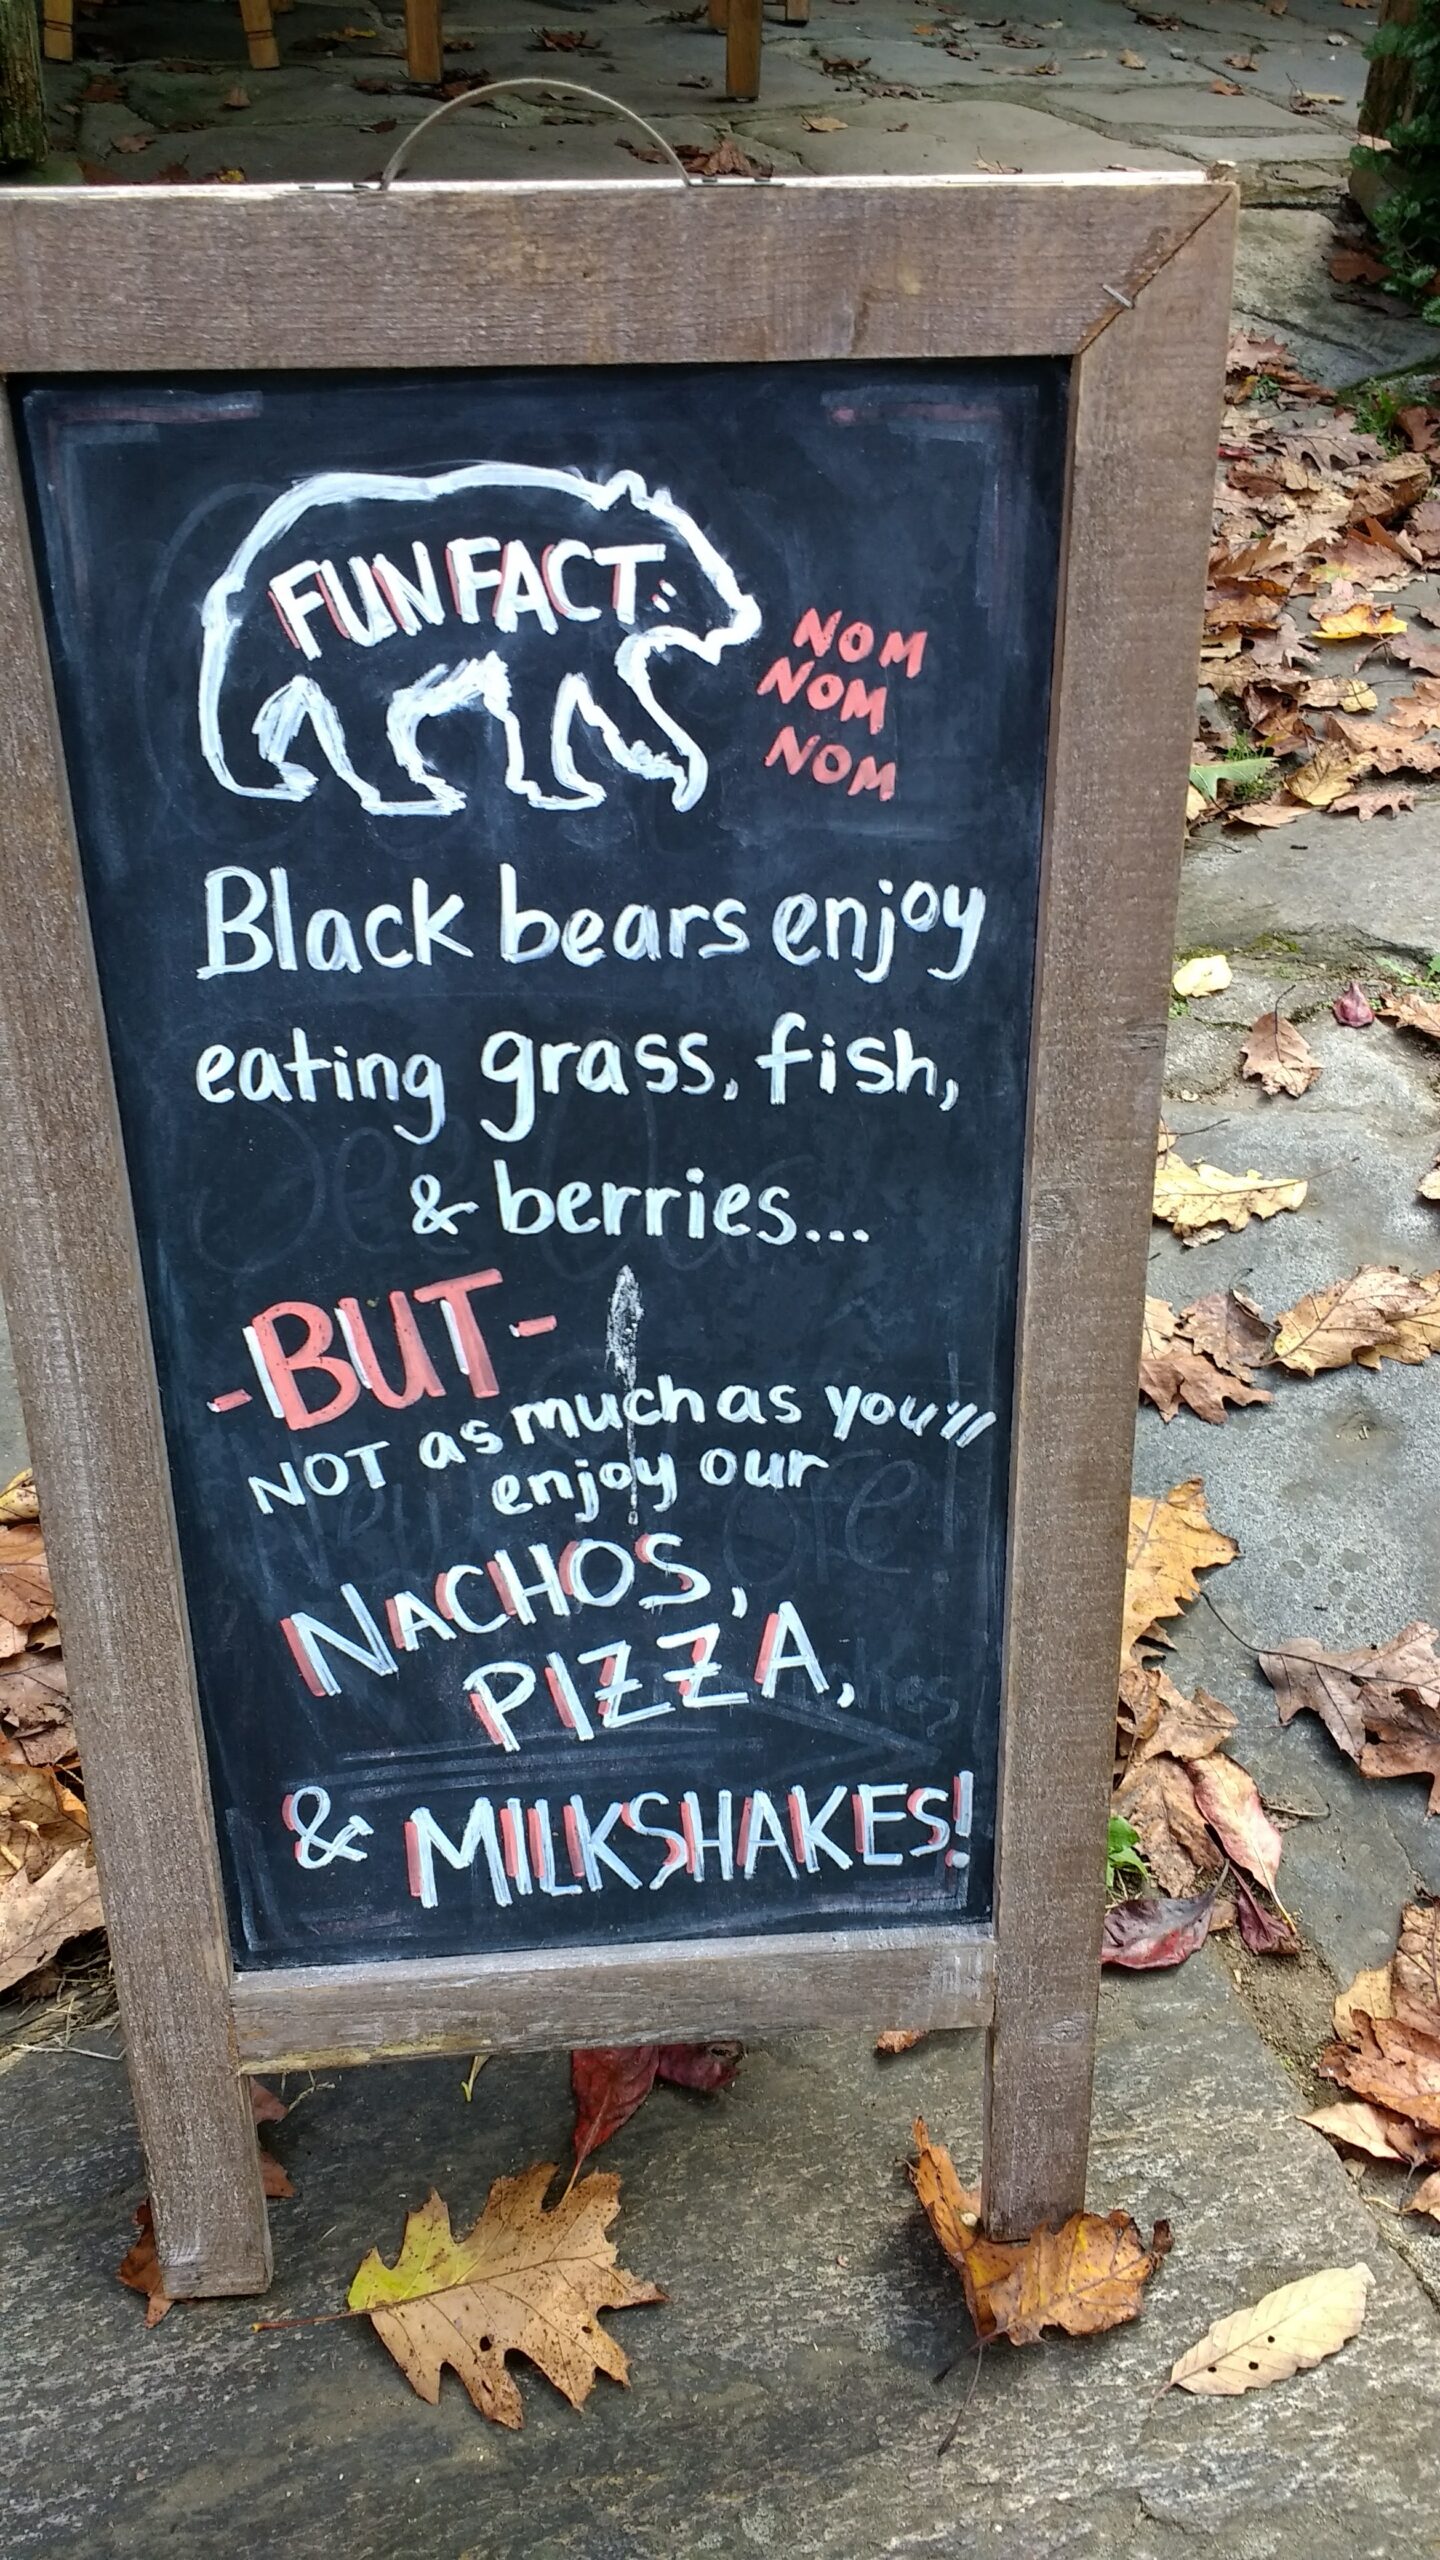 FUN FACT:
NOM
NOM
NOM
Black bears enjoy
eating grass, fish,
& berries...
-BUT-
NOT as much as you'll
enjoy our
NACHOS,
PIZZA,
& MILKSHAKES!